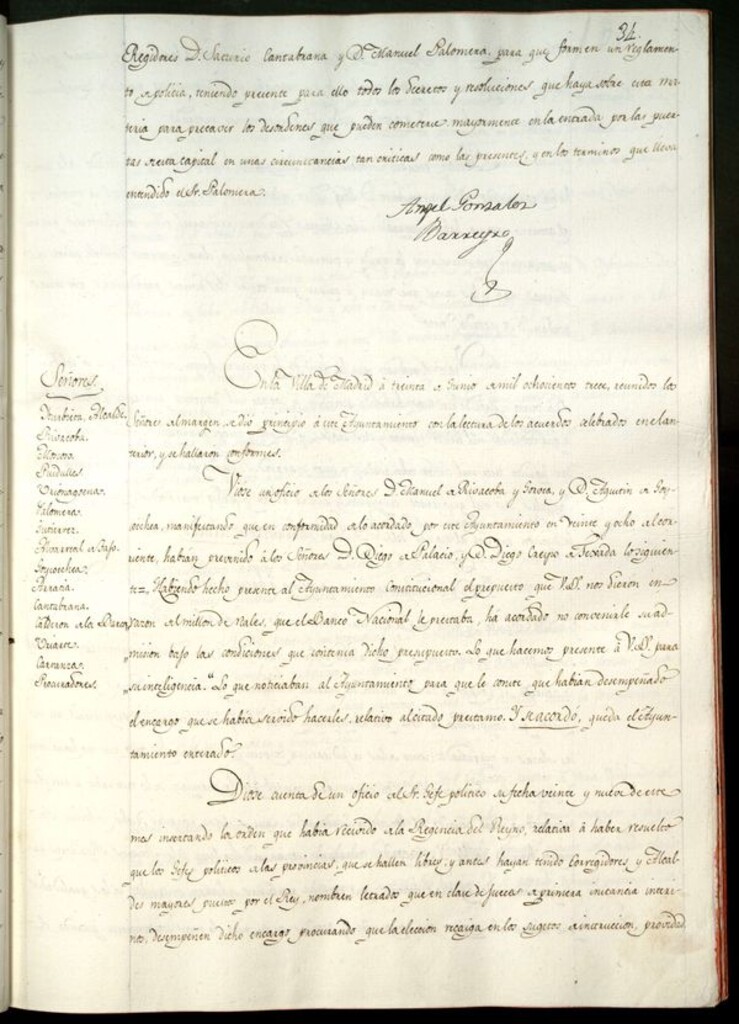 34.
Regidores D. Saturio Cantabrana y D. Manuel Palomera, para que formen un reglamen-
to de policia, teniendo presente para ello todos los Decretos y resoluciones que haya sobre esta ma-
teria para precaver los desordenes que pueden cometerse mayormente en la entrada por las puer-
tas de esta capital en unas circunstancias tan criticas como las presentes, y en los terminos que lleva
entendido el Sr. Palomera.
Angel Gonzalez
Barreyro
En la Villa de Madrid á treinta de Junio de mil ochocientos trece, reunidos los
Señores
Yturbieta, Alcalde.
Rivacoba.
Palomera.
Gutierrez.
Villarreal de
Goycochea.
Cantabrana.
Calderon de la Barca
Uriarte.
Carranza.
Procuradores.
Señores del margen, se dió principio á este Ayuntamiento con la lectura de los acuerdos celebrados en el an-
terior, y se hallaron conformes.
Viose un oficio de los Señores D. Manuel de Rivacoba y Gorvea, y D. Agustin de Goy-
cochea, manifestando que en conformidad de lo acordado por este Ayuntamiento en veinte y ocho del cor-
riente, habian prevenido á los Señores D. Diego de Palacio, y D. Diego Crespo de Texada lo siguien-
te=„Habiendo hecho presente al Ayuntamiento Constitucional el prepuesto que V.SS. nos dieron en
„razon del millon de reales, que el Banco Nacional le prestaba, há acordado no convenirle su ad-
„mision bajo las condiciones que contenia dicho presupuesto. Lo que hacemos presente á V.SS. para
„su inteligencia.“ Lo que noticiaban al Ayuntamiento para que le conste que habian desempeñado
el encargo que se habia servido hacerles, relativo al citado prestamo. Y se acordó, queda el Ayun-
tamiento enterado.
Diose cuenta de un oficio del Sr. Gefe politico su fecha veinte y nueve de este
mes insertando la orden que habia recivido de la Regencia del Reyno, relativa á haber resuelto
que los Gefes politicos de las provincias, que se hallen libres, y antes hayan tenido Corregidores y Alcal-
des mayores puestos por el Rey, nombren letrados que en clase de Jueces de primera instancia interi-
nos, desempeñen dicho encargo, procurando que la eleccion recaiga en los sugetos de instruccion, providad